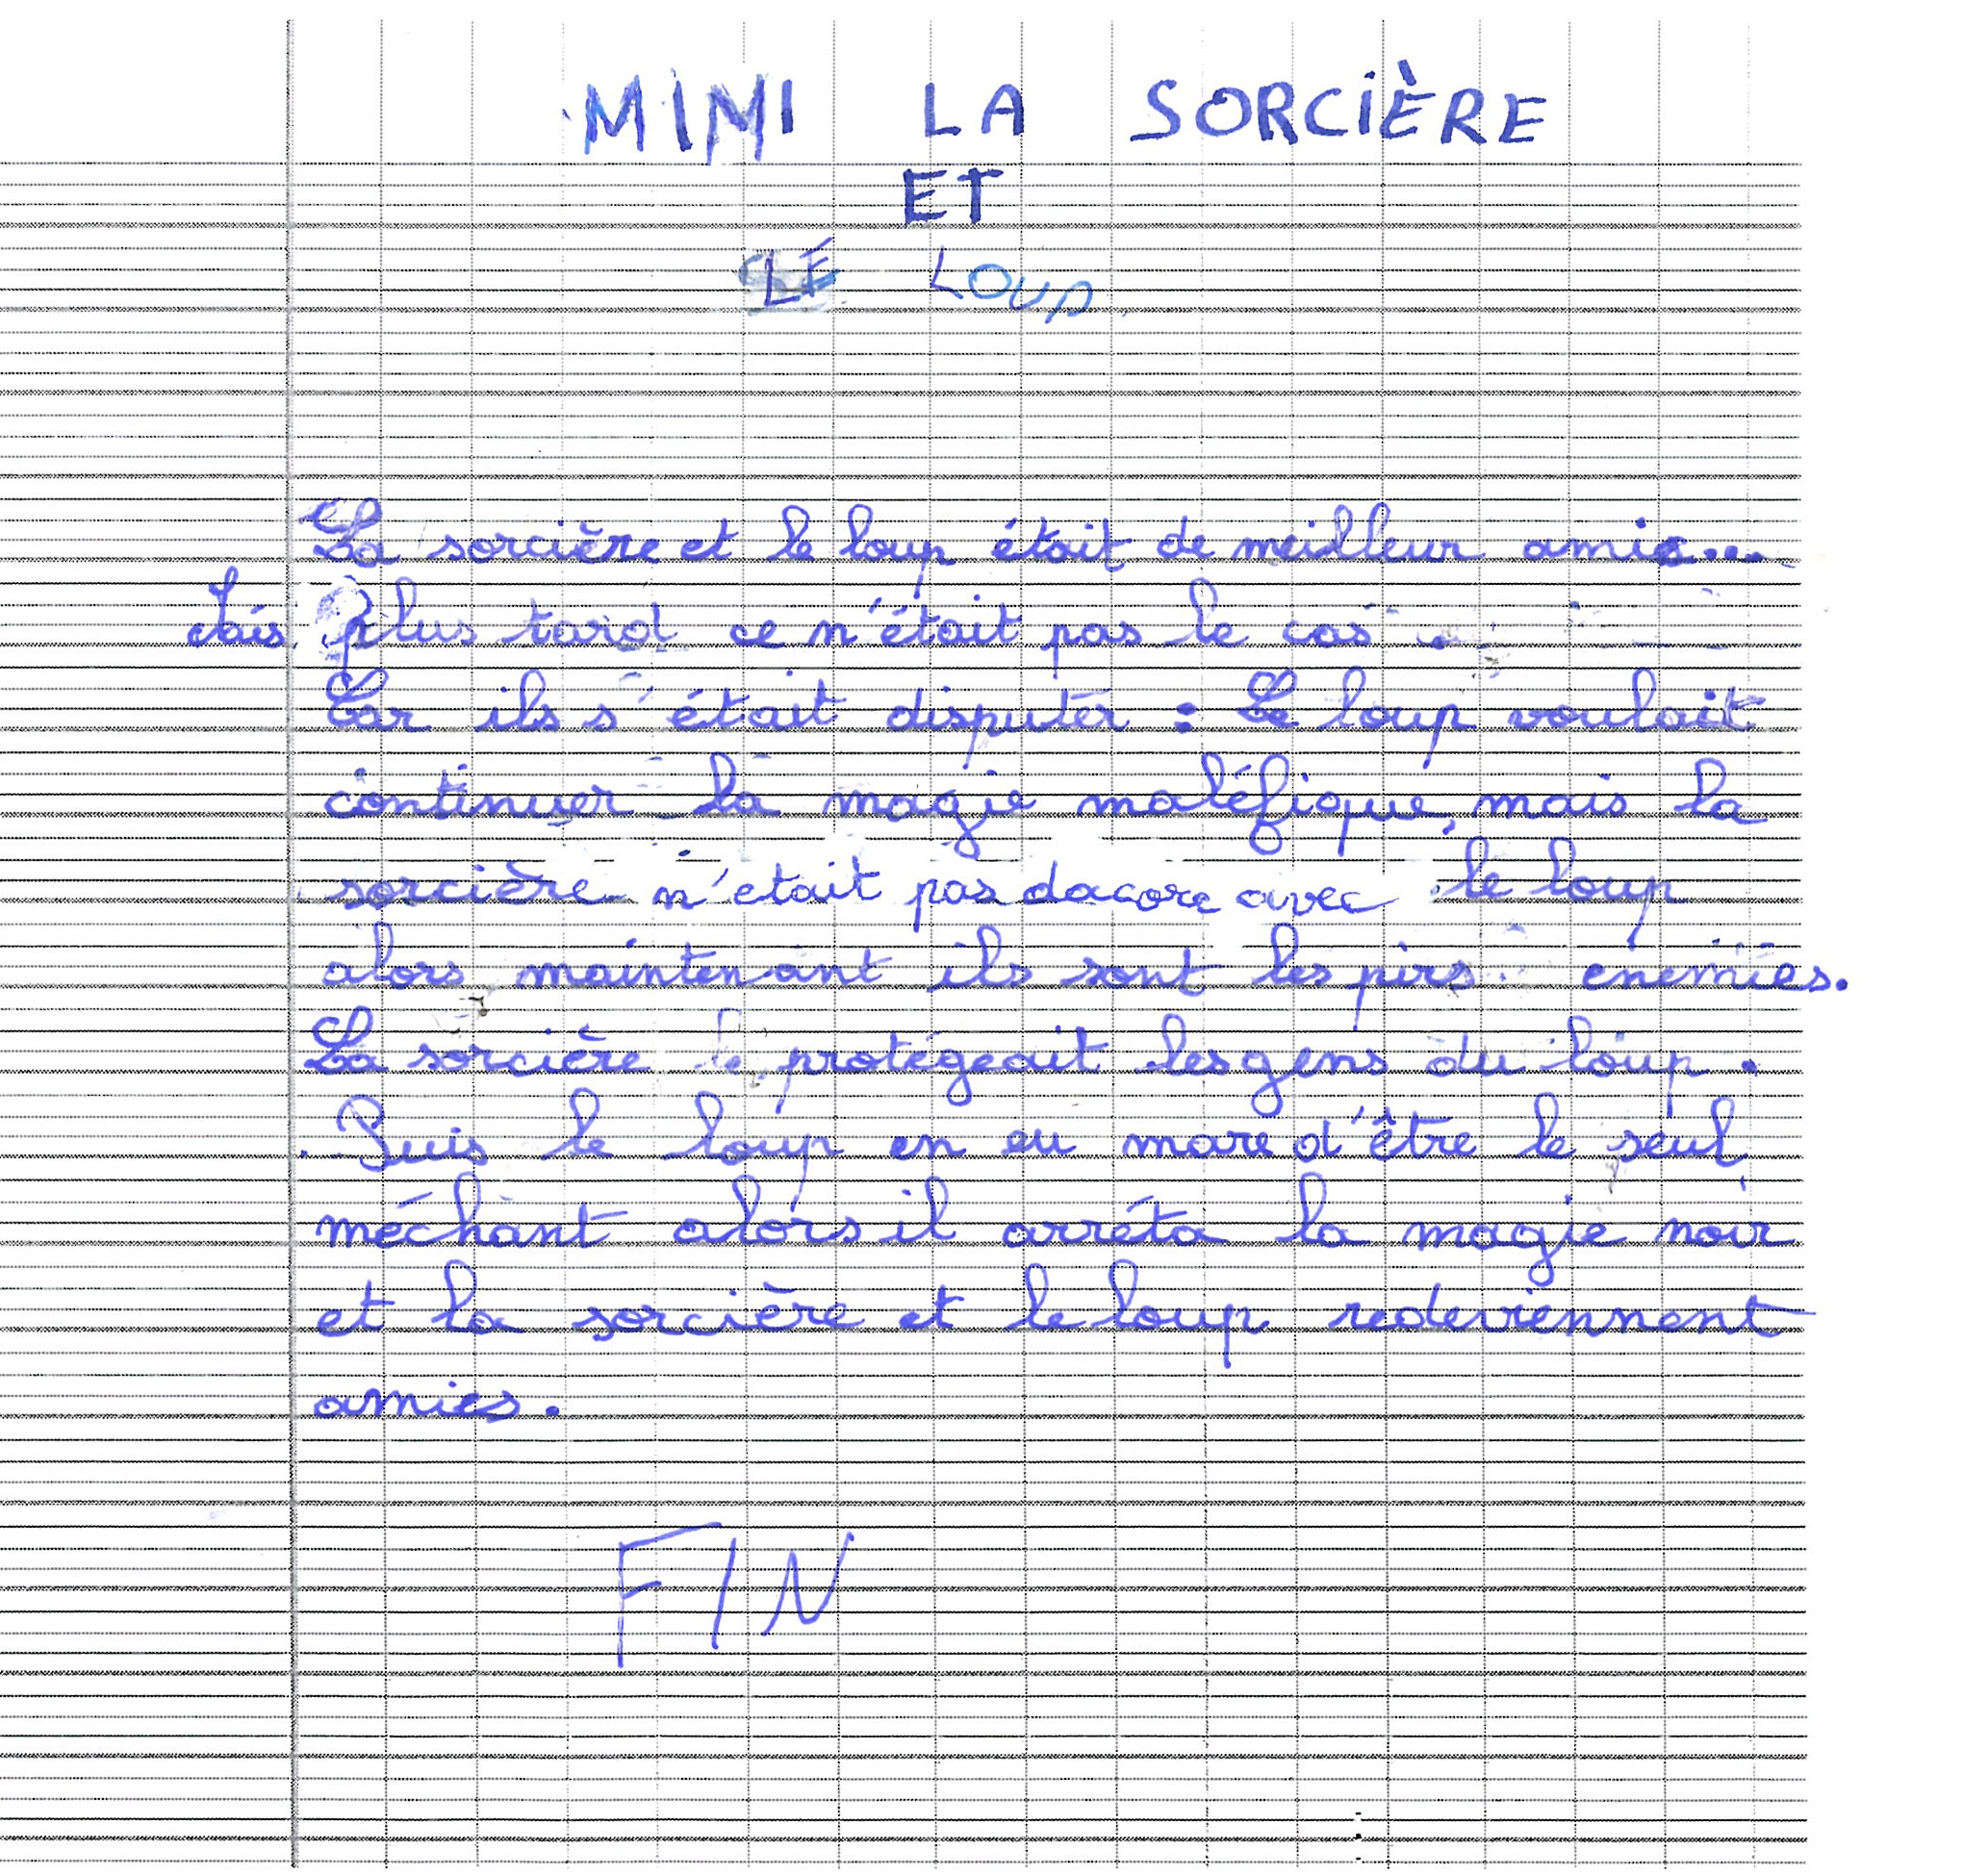 MINI LA SORCIÈRE
ET
LE LOUP
La sorcière et le loup était de meilleur amie...
plus tard ce n'était pas le cas.
Car ils s'était disputer : Le loup voulait
continuer la magie maléfique, mais la
sorcière n'etait pas dacore avec le loup
alors maintenant ils sont les pirs enemies.
La sorcière protégeait les gens du loup.
Puis le loup en eu mare d'être le seul
méchant alors il arréta la magie noir
et la sorcière et le loup redeviennent
amies.
FIN